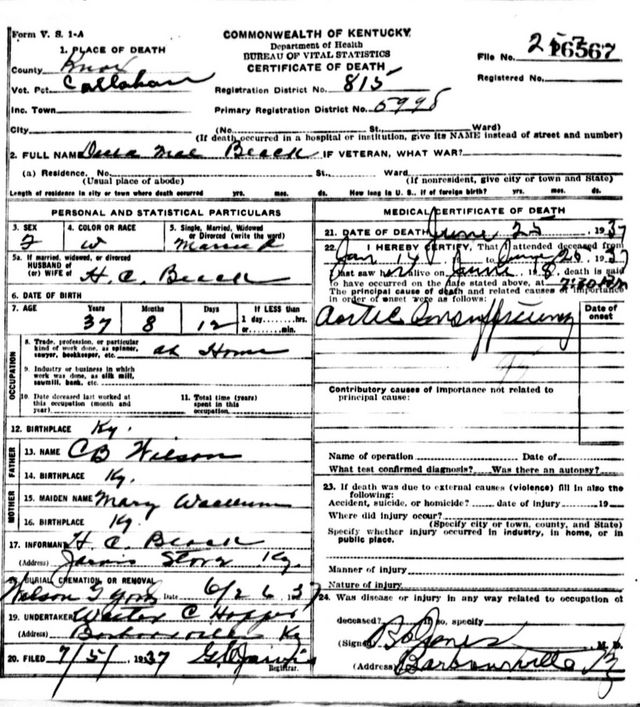 Form V. S. 1-A
COMMONWEALTH OF KENTUCKY
Department of Health
BUREAU OF VITAL STATISTICS
CERTIFICATE OF DEATH
File No. 16567
Registered No.
1. PLACE OF DEATH
County Knox
Vot. Pct. Callahan
Inc. Town
City
Registration District No. 815
Primary Registration District No. 5998
(No. St., Ward)
(If death occurred in a hospital or institution, give its NAME instead of street and number)
2. FULL NAME Mae IF VETERAN, WHAT WAR?
(a) Residence, No. St., Ward
(Usual place of abode) (If nonresident, give city or town and State)
Length of residence in city or town where death occurred yrs. mos. ds. How long in U. S., if of foreign birth? yrs. mos. ds.
PERSONAL AND STATISTICAL PARTICULARS
3. SEX
F
4. COLOR OR RACE
W
5. Single, Married, Widowed
or Divorced (write the word)
Married
5a. If married, widowed, or divorced
HUSBAND of
(or) WIFE of H. C.
6. DATE OF BIRTH
7. AGE Years Months Days If LESS than
37 8 12 1 day, hrs.
or min.
OCCUPATION
8. Trade, profession, or particular
kind of work done, as spinner,
sawyer, bookkeeper, etc. at Home
9. Industry or business in which
work was done, as silk mill,
sawmill, bank, etc.
10. Date deceased last worked at
this occupation (month and
year)
11. Total time (years)
spent in this
occupation
12. BIRTHPLACE Ky.
FATHER
13. NAME C B Wilson
14. BIRTHPLACE Ky.
MOTHER
15. MAIDEN NAME Mary
16. BIRTHPLACE Ky.
17. INFORMANT H. C.
(Address) Jarvis Store Ky.
18. BURIAL CREMATION OR REMOVAL
Wilson G Yard Date 6/26 1937
19. UNDERTAKER C Hopper
(Address) Barbourville Ky
20. FILED 7/5/ 1937 G Jarvis
Registrar.
MEDICAL CERTIFICATE OF DEATH
21. DATE OF DEATH June 25, 1937
22. I HEREBY CERTIFY, That I attended deceased from
Jan 14 to June 1937
I last saw her alive on June 193 , death is said
to have occurred on the date stated above, at 7:30
The principal cause of death and related causes of importance
in order of onset were as follows:
Date of
onset
Aortic Insufficiency
Contributory causes of importance not related to
principal cause:
Name of operation Date of
What test confirmed diagnosis? Was there an autopsy?
23. If death was due to external causes (violence) fill in also the
following:
Accident, suicide, or homicide? date of injury 19
Where did injury occur?
(Specify city or town, county, and State)
Specify whether injury occurred in industry, in home, or in
public place.
Manner of injury
Nature of injury
24. Was disease or injury in any way related to occupation of
deceased? If so, specify
(Signed) Jones M. D.
(Address) Barbourville Ky